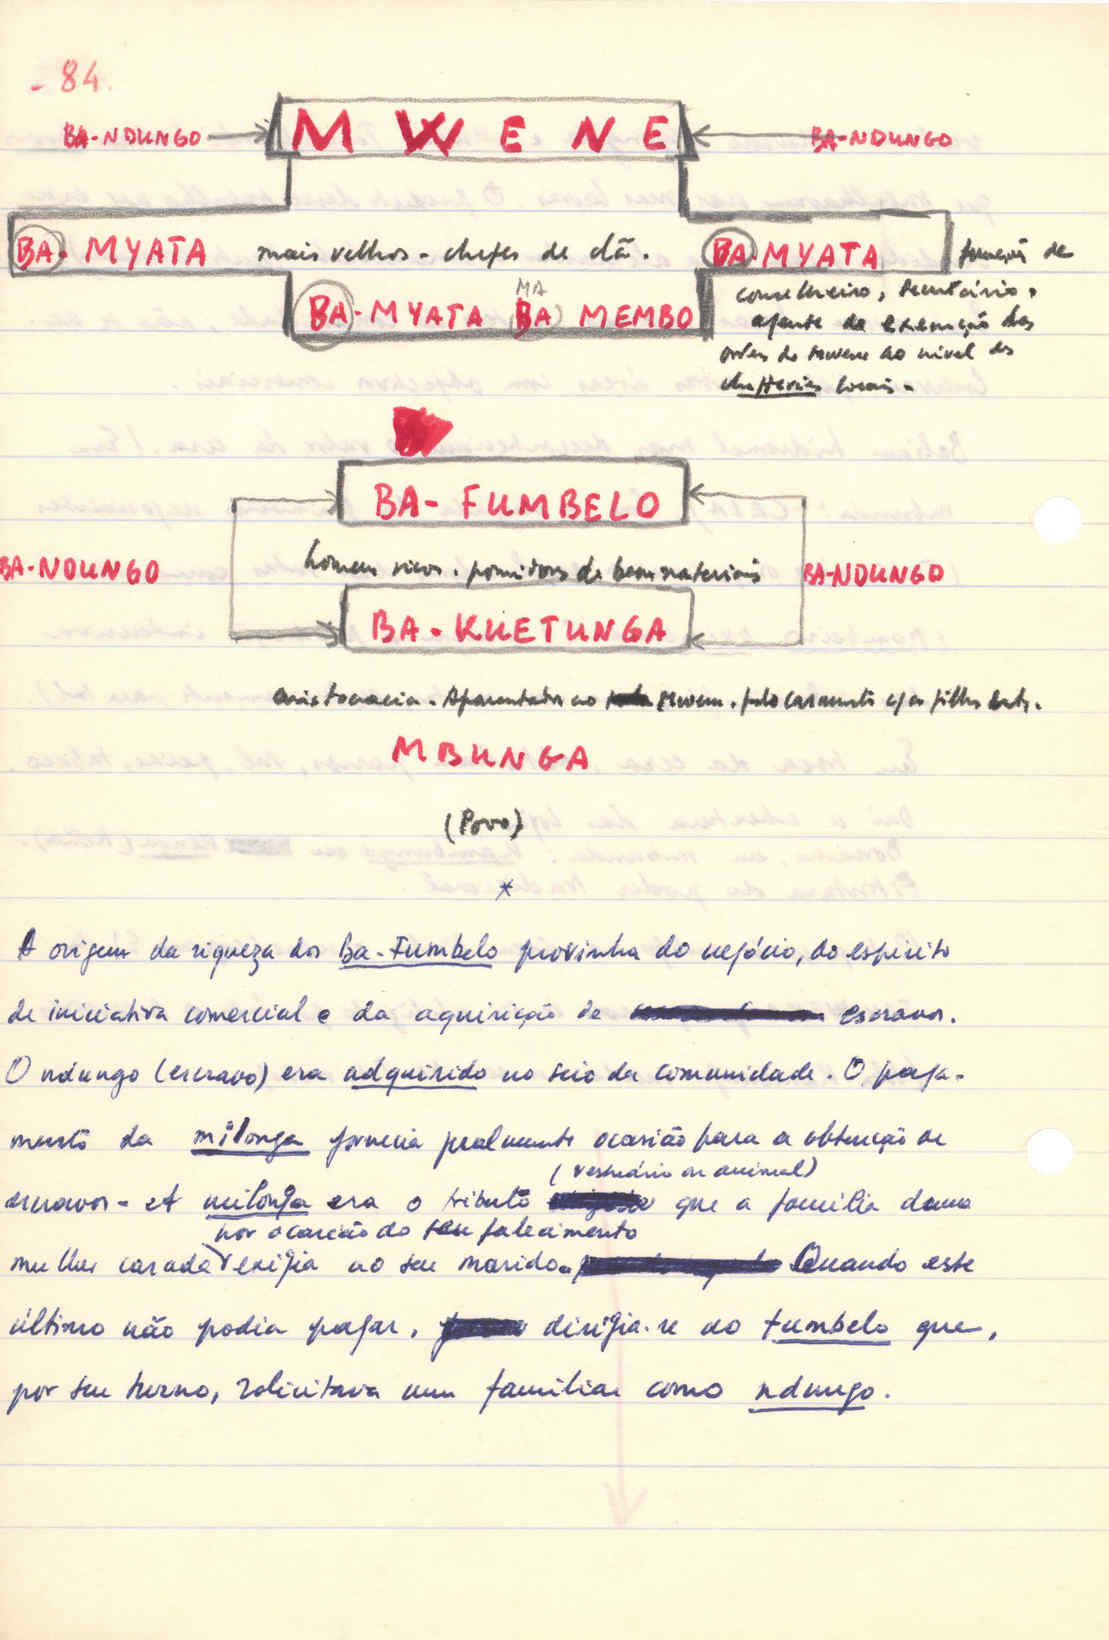 - 84.
BA-NDUNGO MWENE BA-NDUNGO
BA-MYATA mais velhos - chefes de clã. BA-MYATA função de
conselheiro, secretário,
agente de execução das
ordens do Mwene ao nível das
chefferies locais.
MA
BA-MYATA BA MEMBO
BA-FUMBELO
BA-NDUNGO homens ricos. possuidores de bens materiais BA-NDUNGO
BA-KUETUNGA
aristocracia. Aparentados ao Mwene. pelo casamento c/ as filhas deste.
MBUNGA
(Povo)
*
A origem da riqueza dos Ba-Fumbelo provinha do negócio, do espírito
de iniciativa comercial e da aquisição de escravos.
O ndungo (escravo) era adquirido no seio da comunidade. O paga-
mento da milonga fornecia geralmente ocasião para a obtenção de
(vestuário ou animal)
escravos - A milonga era o tributo que a família duma
por ocasião do seu falecimento
mulher casada exigia ao seu marido. Quando este
último não podia pagar, dirigia-se ao fumbelo que,
por seu turno, solicitava um familiar como ndungo.